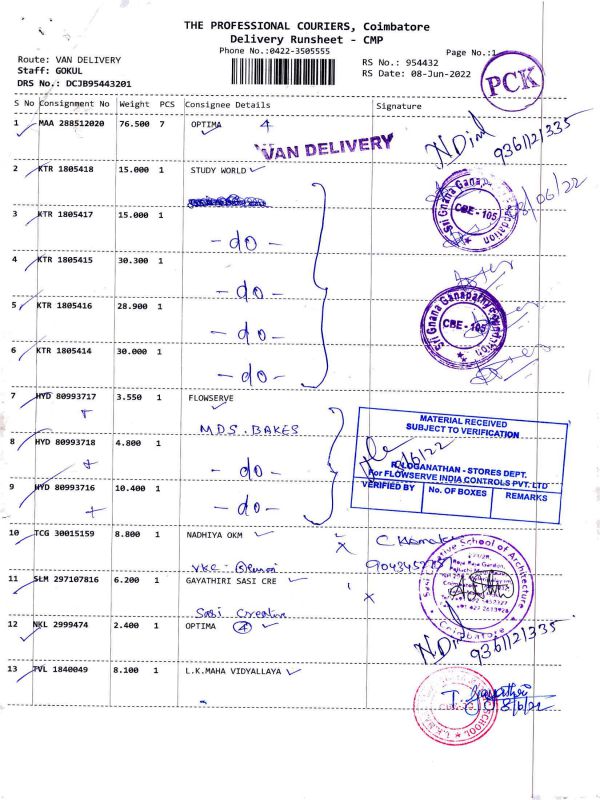 THE PROFESSIONAL COURIERS, Coimbatore
Delivery Runsheet - CMP
Phone No.:0422-3505555
Page No.:1
Route: VAN DELIVERY
Staff: GOKUL
DRS No.: DCJB95443201
RS No.: 954432
RS Date: 08-Jun-2022
PCK
S No Consignment No Weight PCS Consignee Details Signature
1 MAA 288512020 76.500 7 OPTIMA 4
VAN DELIVERY
NDinl 9361121335
2 KTR 1805418 15.000 1 STUDY WORLD
Sri Gnana Ganapathy Foundation
CBE - 105
8/06/22
3 KTR 1805417 15.000 1
- do -
4 KTR 1805415 30.300 1
- do -
5 KTR 1805416 28.900 1
- do -
Sri Gnana Ganapathy Foundation
CBE - 105
6 KTR 1805414 30.000 1
- do -
7 HYD 80993717 3.550 1 FLOWSERVE
MDS. BAKES
MATERIAL RECEIVED
SUBJECT TO VERIFICATION
8 HYD 80993718 4.800 1
- do -
R. LOGANATHAN - STORES DEPT.
For FLOWSERVE INDIA CONTROLS PVT. LTD
VERIFIED BY No. OF BOXES REMARKS
9 HYD 80993716 10.400 1
- do -
10 TCG 30015159 8.800 1 NADHIYA OKM
VKC
11 SLM 297107816 6.200 1 GAYATHIRI SASI CRE
Sasi Creative
Sasi Creative School of Architecture
Coimbatore
12 NKL 2999474 2.400 1 OPTIMA 4
NDinl 9361121335
13 TVL 1840049 8.100 1 L.K.MAHA VIDYALLAYA
SCHOOL
8/6/22